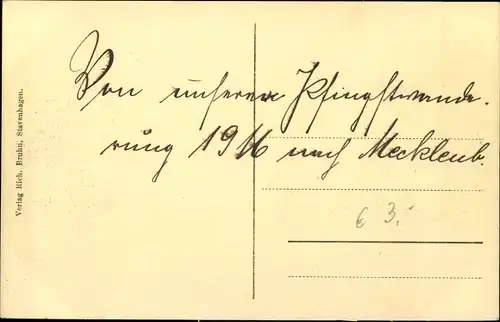 Von unserer Pfingstwande-
rung 1916 nach Mecklenb.
6 3.-
Verlag Rich. Bruhn, Stavenhagen.